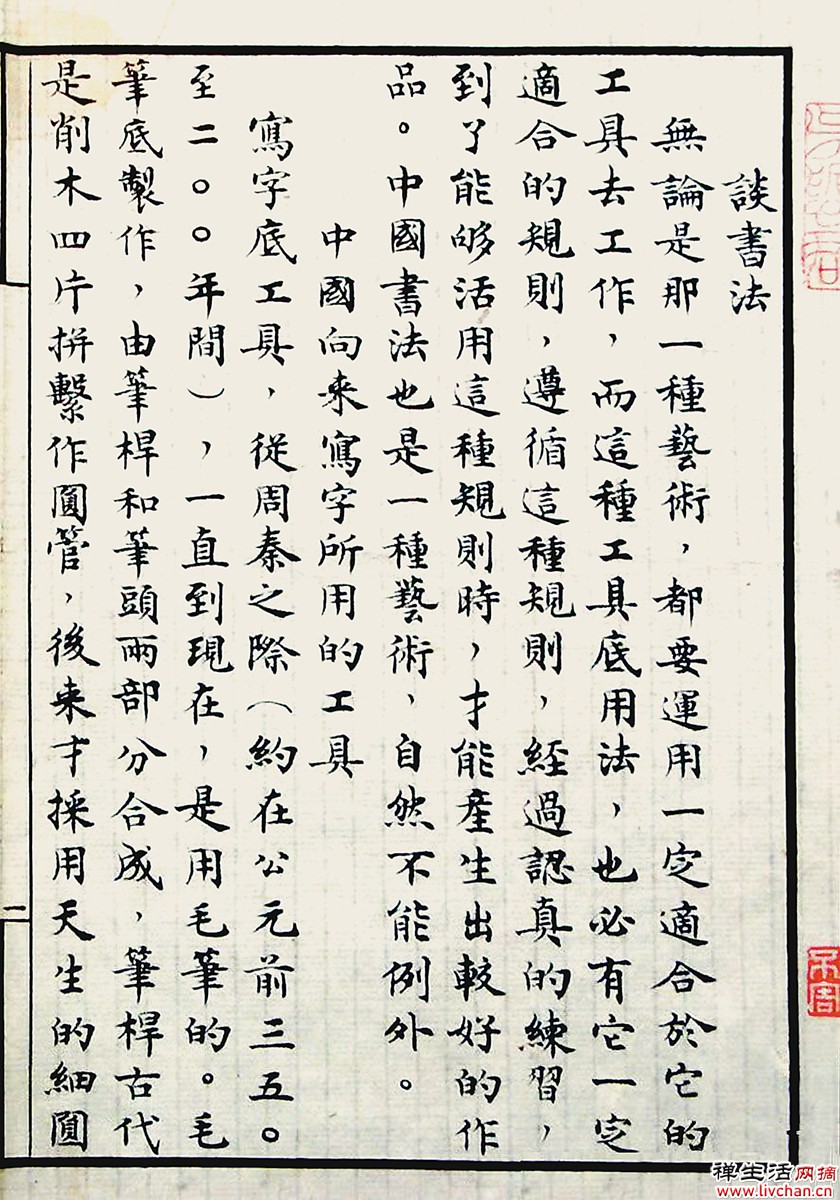 談書法
無論是那一種藝術，都要運用一定適合於它的
工具去工作，而這種工具底用法，也必有它一定
適合的規則，遵循這種規則，經過認真的練習，
到了能够活用這種規則時，才能產生出較好的作
品。中國書法也是一種藝術，自然不能例外。
中國向来寫字所用的工具
寫字底工具，從周秦之際（約在公元前三五〇
至二〇〇年間），一直到現在，是用毛筆的。毛
筆底製作，由筆桿和筆頭兩部分合成，筆桿古代
是削木四片拼繫作圓管，後来才採用天生的細圓
一
禅生活网摘
www.livchan.cn